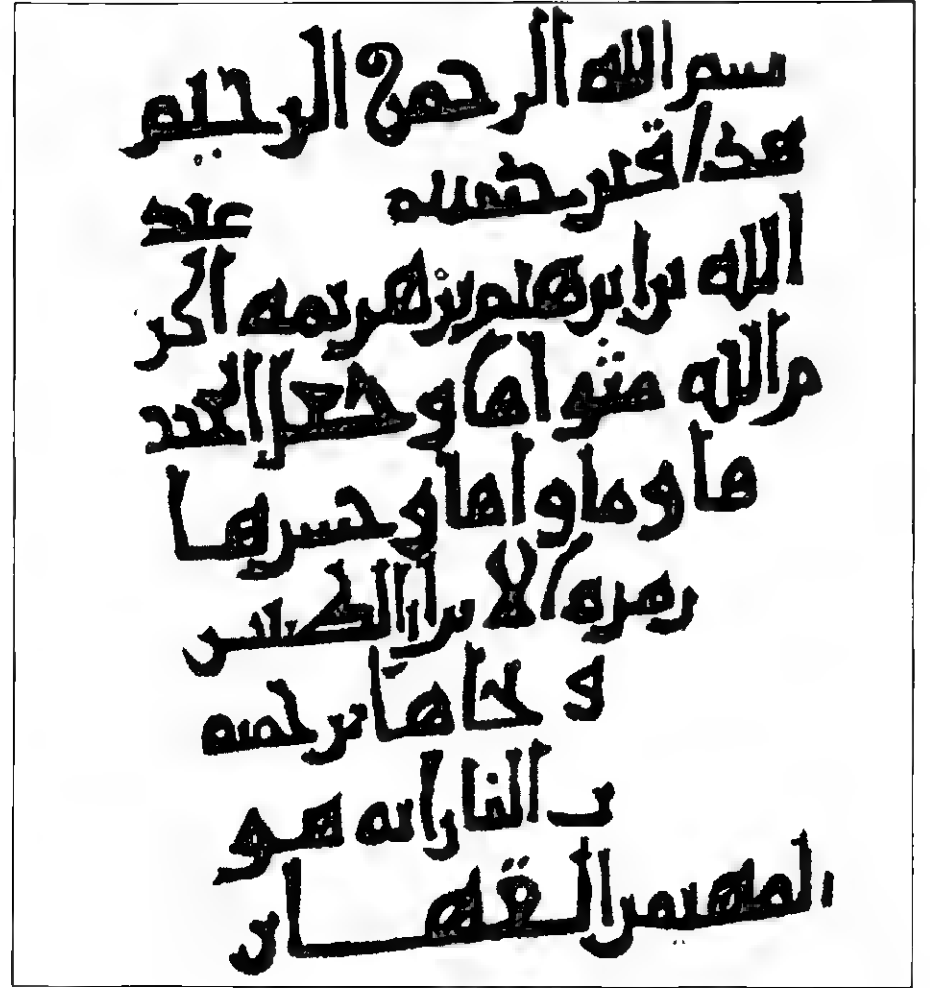 بسم الله الرحمن الرحيم
هذا قبر عبد
الله بن ابرهيم بن هريمه اكر
م الله مثواها وجعل
وماواها وحشرها
زمره الابرار الطيبين
و نجاها برحمته
من النار انه هو
المهيمن القهار